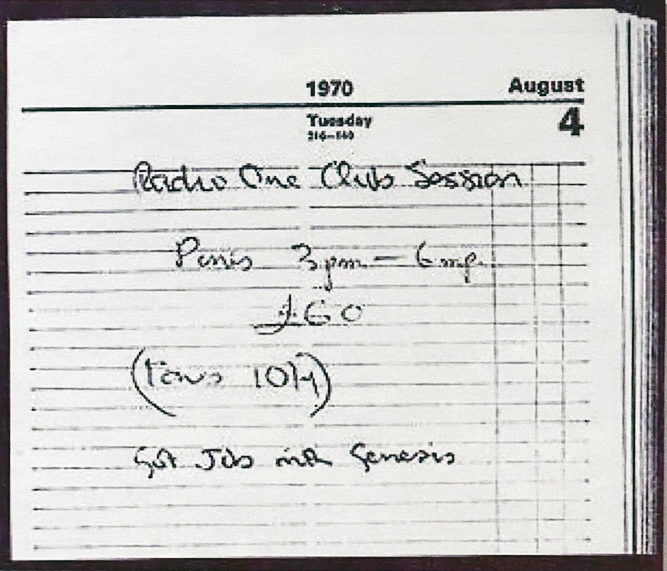 1970 August
Tuesday 4
216–149
Radio One Club Session
Paris 3pm – 6mp.
£60
(
Got Job with Genesis